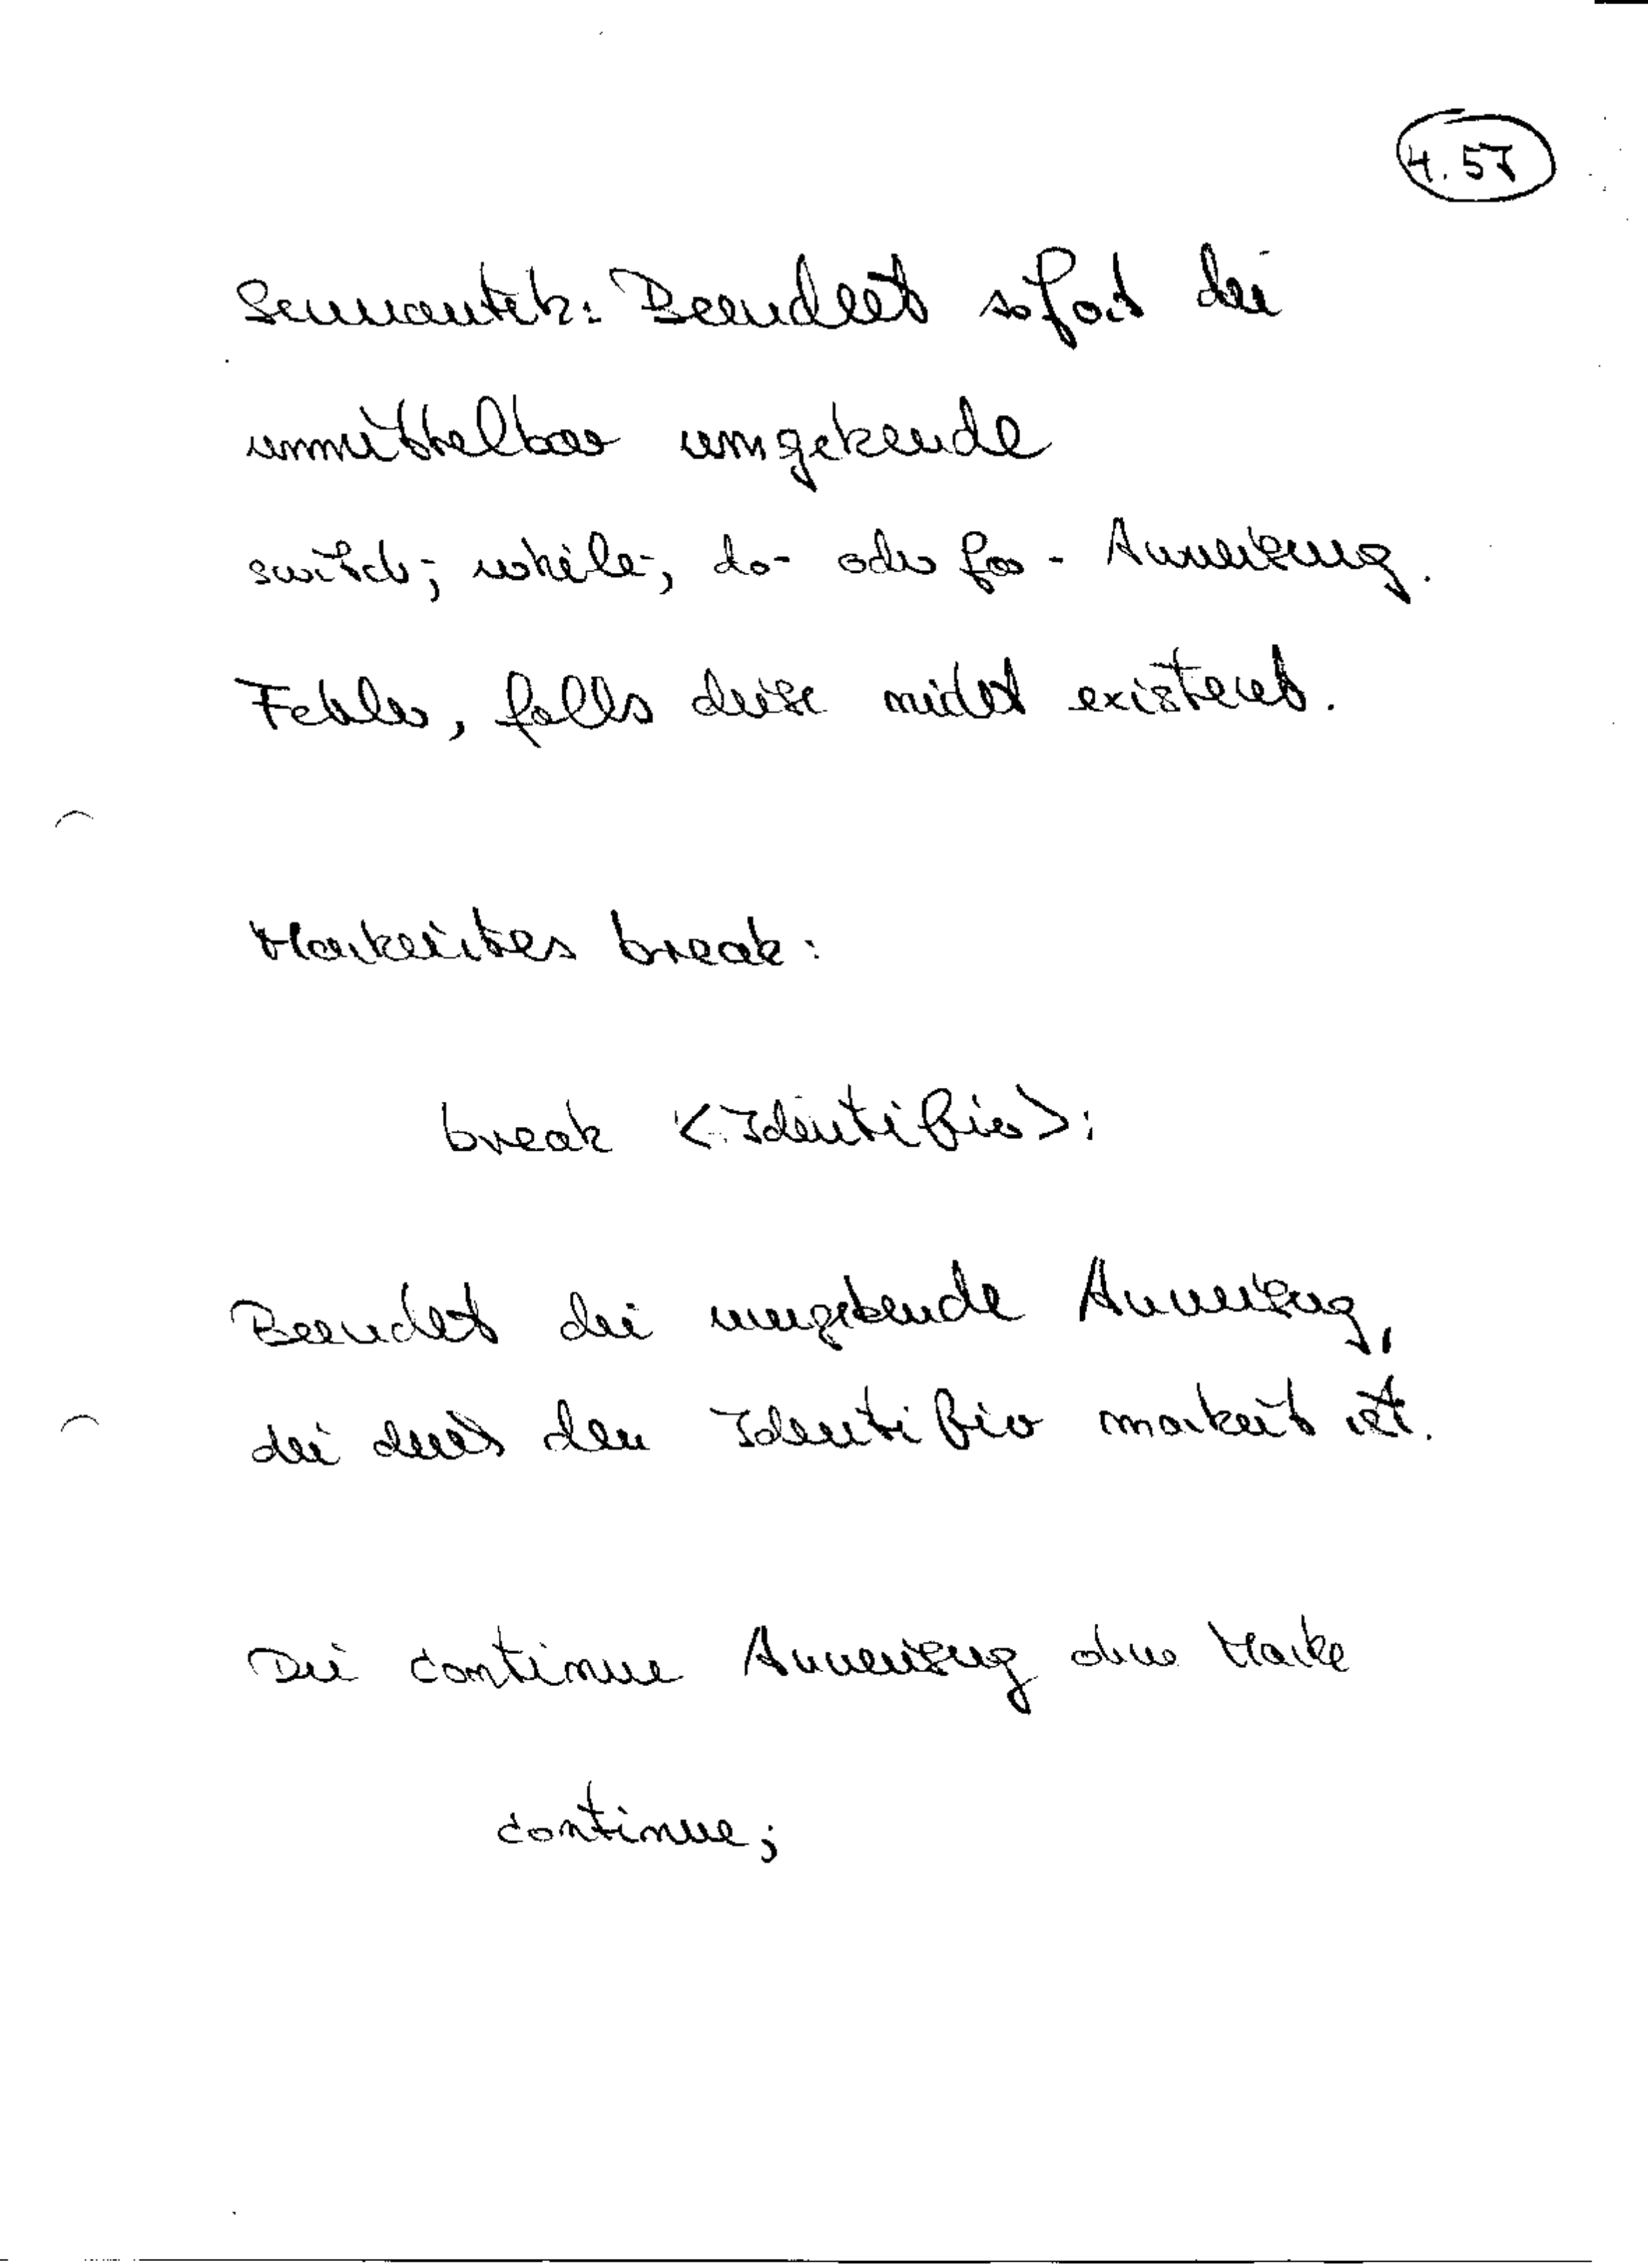 4.57
Semantik: Beendet sofort die
unmittelbar umgebende
switch-, while-, do- oder for - Anweisung.
Fehler, falls diese nicht existiert.
Markiertes break:
break <Identifier>;
Beendet die umgebende Anweisung,
die durch den Identifier markiert ist.
Die continue Anweisung ohne Marke
continue;